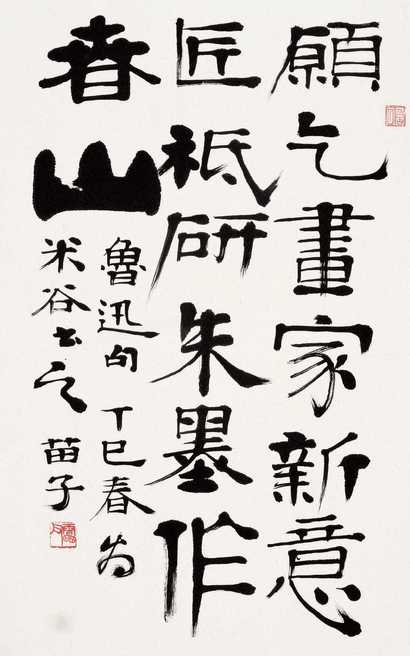 願乞畫家新意
匠祗研朱墨作
春山
魯迅句 丁巳春為
米谷書之 苗子